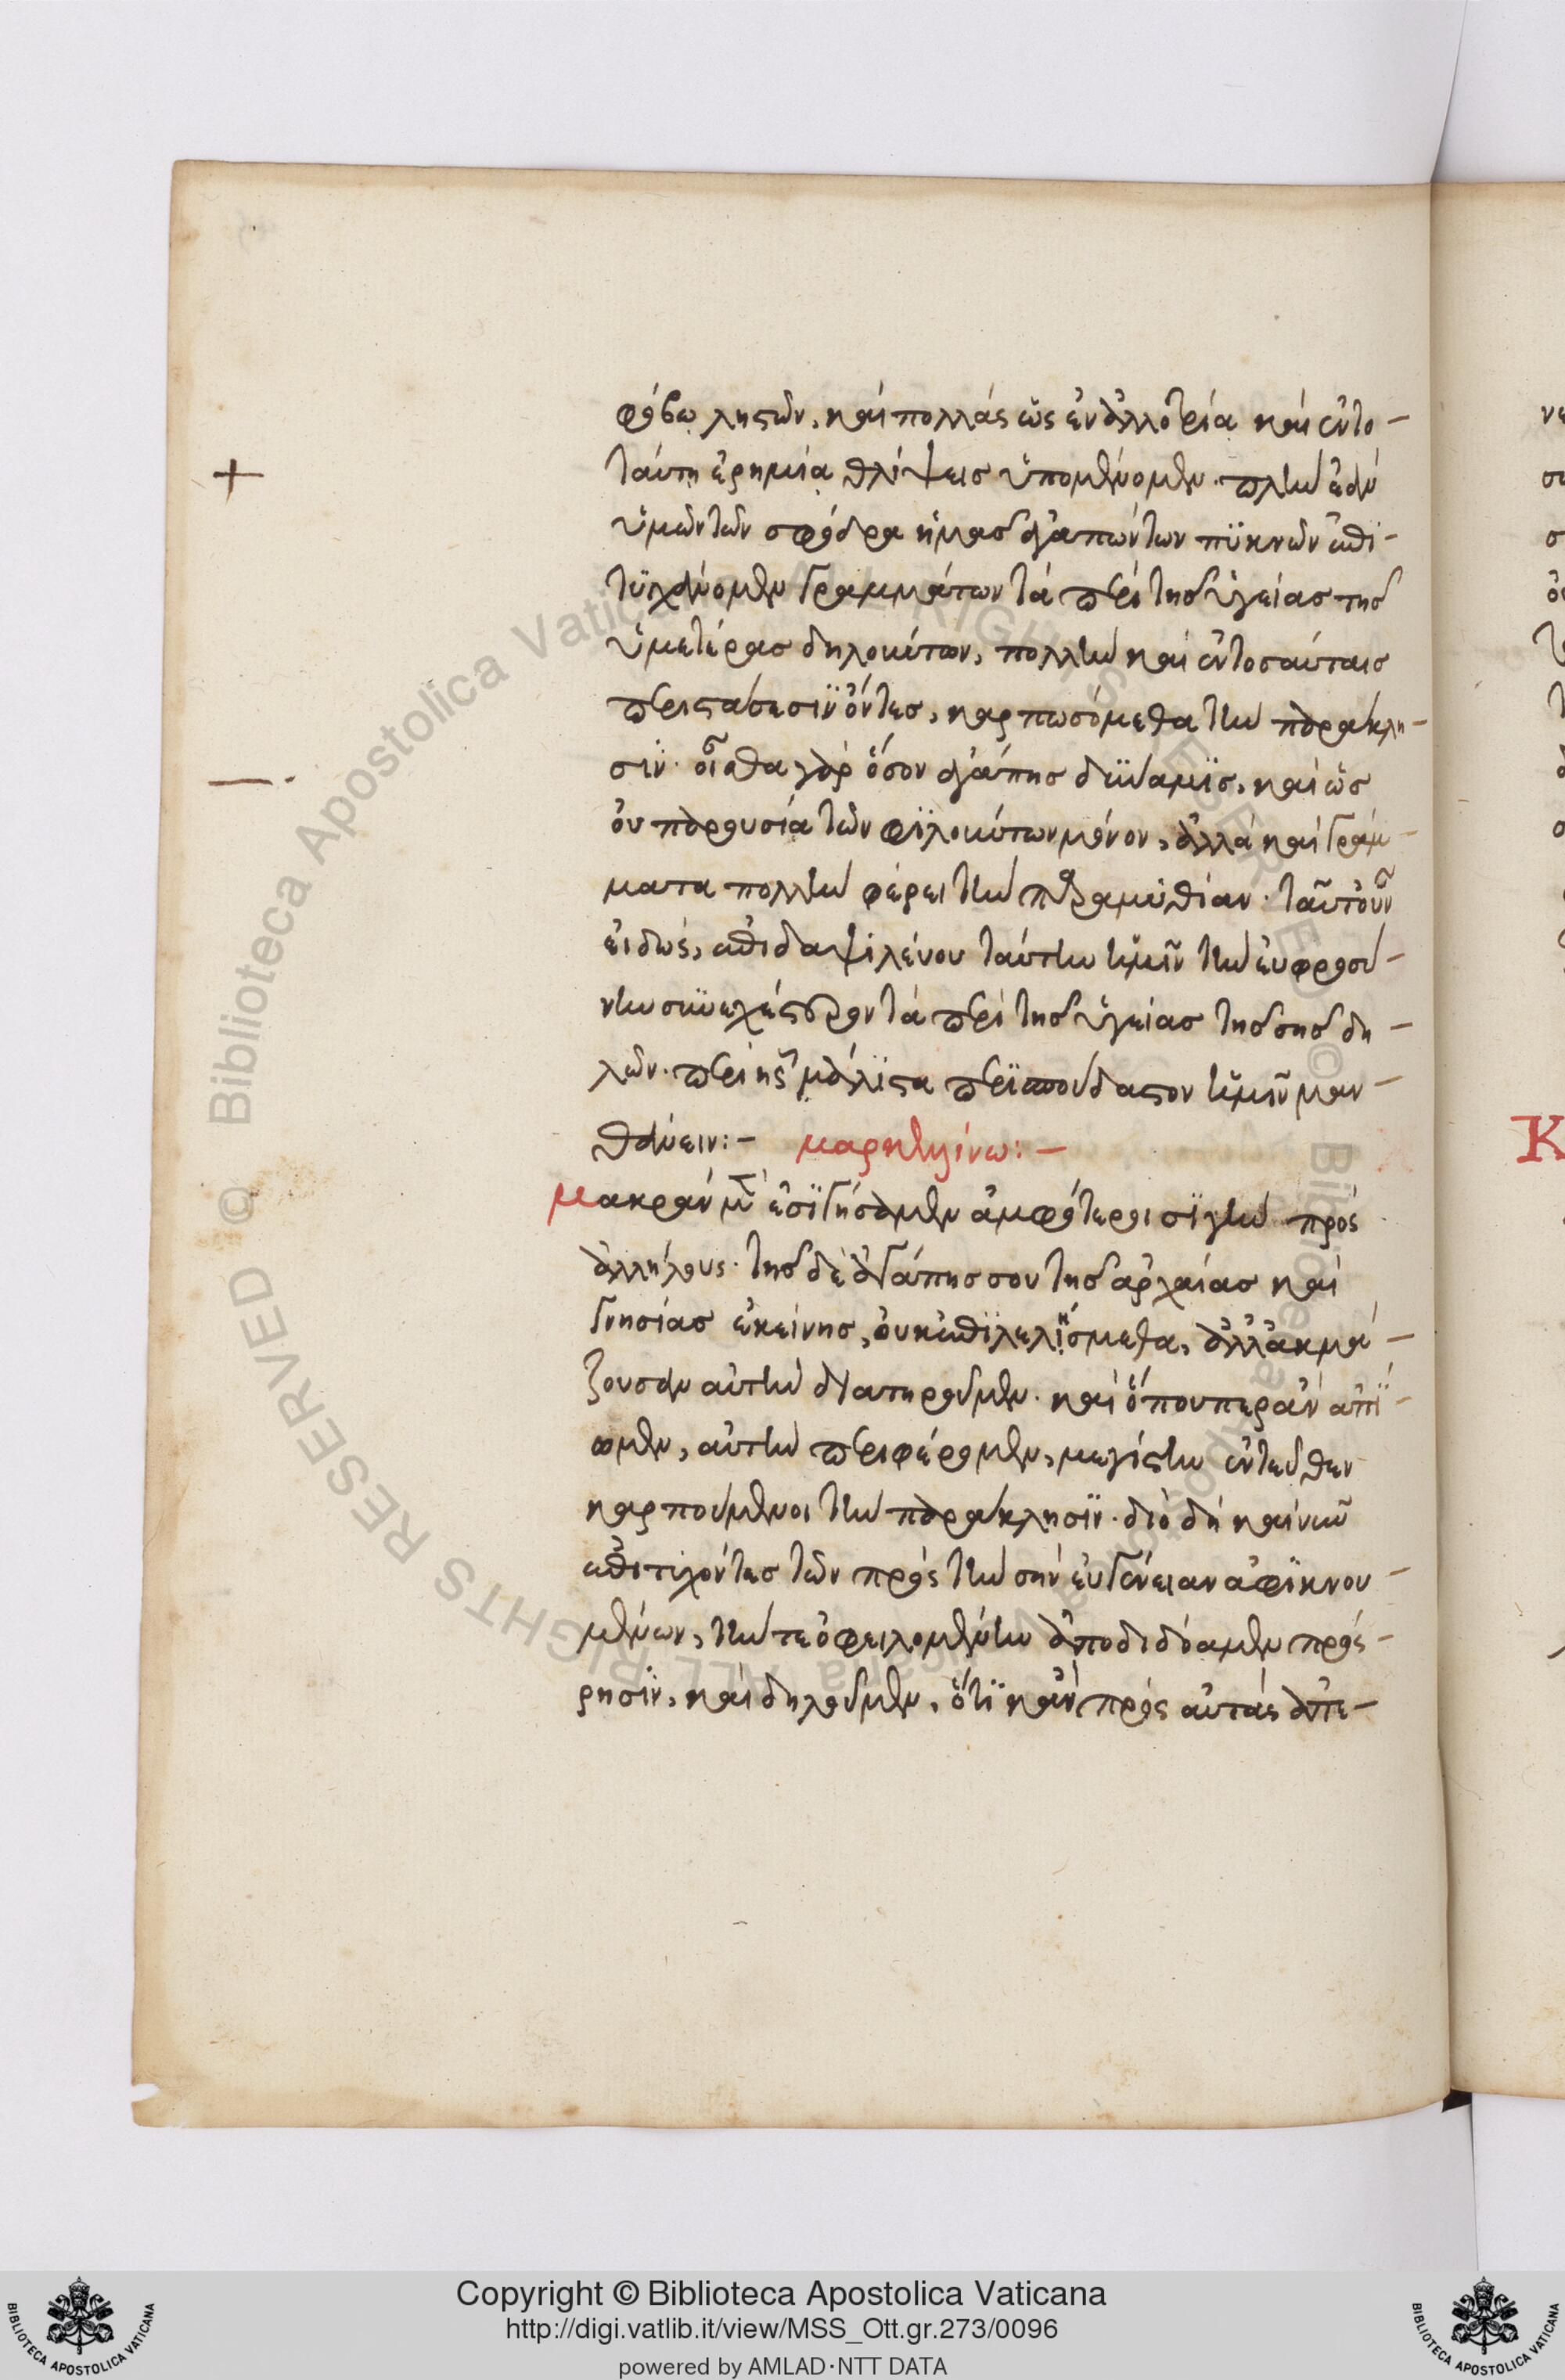 φόβῳ λῃστῶν, καὶ πολλὰς ὡς ἐν ἀλλοτρία καὶ ἐν το-
ταύτη ἐρημία θλίψεις ὑπομένομεν. πλὴν ἐὰν
ὑμῶν τῶν σφόδρα ἡμᾶς ἀγαπώντων πϋκνῶν ἐπι-
τϋχάνομεν γραμμάτων τὰ περὶ τῆς ὑγείας τῆς
ὑμετέρας δηλούντων, πολλὴν καὶ ἐν τοσαύταις
περιστάσεσϊν ὄντες, καρπωσόμεθα τὴν παράκλη-
σϊν. οἶσθα γὰρ ὅσον ἀγάπης δϋναμϊς, καὶ ὡς
οὐ παρουσία τῶν φϊλούντων μόνον, ἀλλὰ καὶ γράμ
ματα πολλὴν φέρει τὴν παραμυθίαν. ταῦτ' οὖν
εἰδὼς, ἐπιδαψιλεύου ταύτην ἡμῖν τὴν εὐφροσύ-
νην συνεχέστερον τὰ περὶ τῆς ὑγείας τῆς σῆς δη-
λῶν. περὶ ἧς μάλϊστα περισπούδαστον ἡμῖν μαν-
θάνειν:- μαρκελλίνω:-
Μακρὰν μὲν ἐσϊγήσαμεν ἀμφότεροι σϊγὴν πρὸς
ἀλλήλους. τῆς δὲ ἀγάπης σου τῆς ἀρχαίας καὶ
γνησίας ἐκείνης, οὐκ ἐπϊλελήσμεθα, ἀλλ' ἀκμά-
ζουσαν αὐτὴν διατηροῦμεν. καὶ ὅπουπερ ἂν ἀπΐ-
ωμεν, αὐτὴν περιφέρομεν, μεγίστην ἐντεῦθεν
καρπούμενοι τὴν παράκλησϊν. διὸ δὴ καὶ νῦν
ἐπιτυχόντες τῶν πρὸς τὴν σὴν εὐγένειαν ἀφϊκνου-
μένων, τήν τε ὀφειλομένην ἀποδιδόαμεν πρόσ-
ρησϊν, καὶ δηλοῦμεν, ὅτϊ κἂν πρὸς αὐτὰς ἀπε-
Copyright © Biblioteca Apostolica Vaticana
http://digi.vatlib.it/view/MSS_Ott.gr.273/0096
powered by AMLAD·NTT DATA